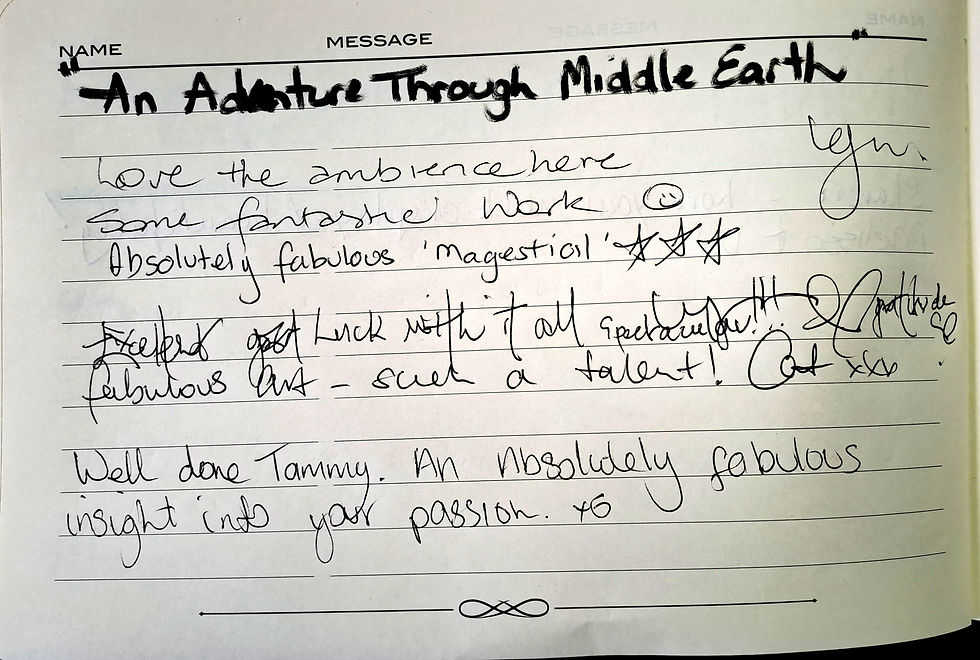 NAME MESSAGE
"An Adventure Through Middle Earth"
Love the ambience here
Some fantastic Work ☺
Absolutely fabulous 'magestical' ☆☆☆
Luck with it all spectacular!!! gratitude
fabulous Art - such a talent! Cat xxx
Well done Tammy. An Absolutely fabulous
insight into your passion. xo